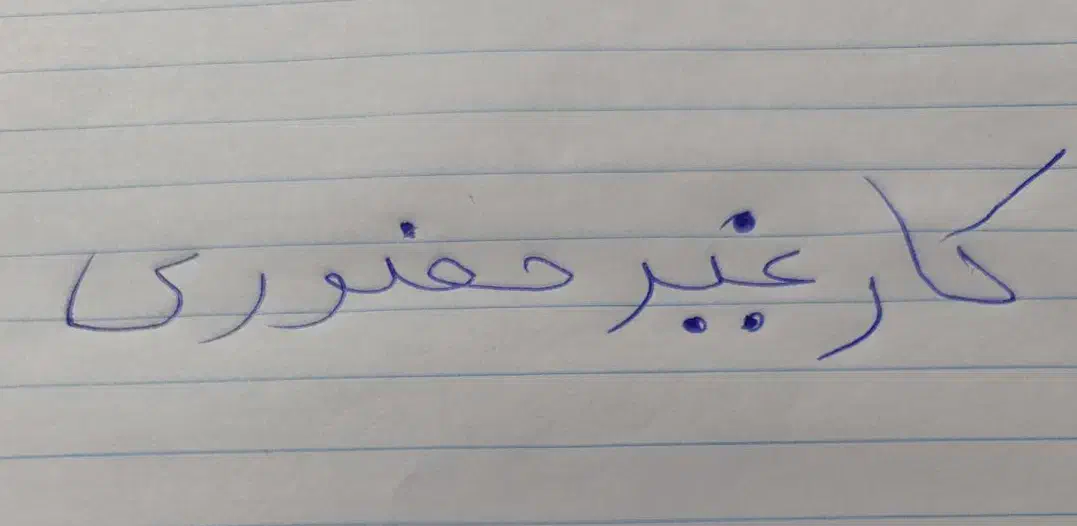 کار غیر حضوری